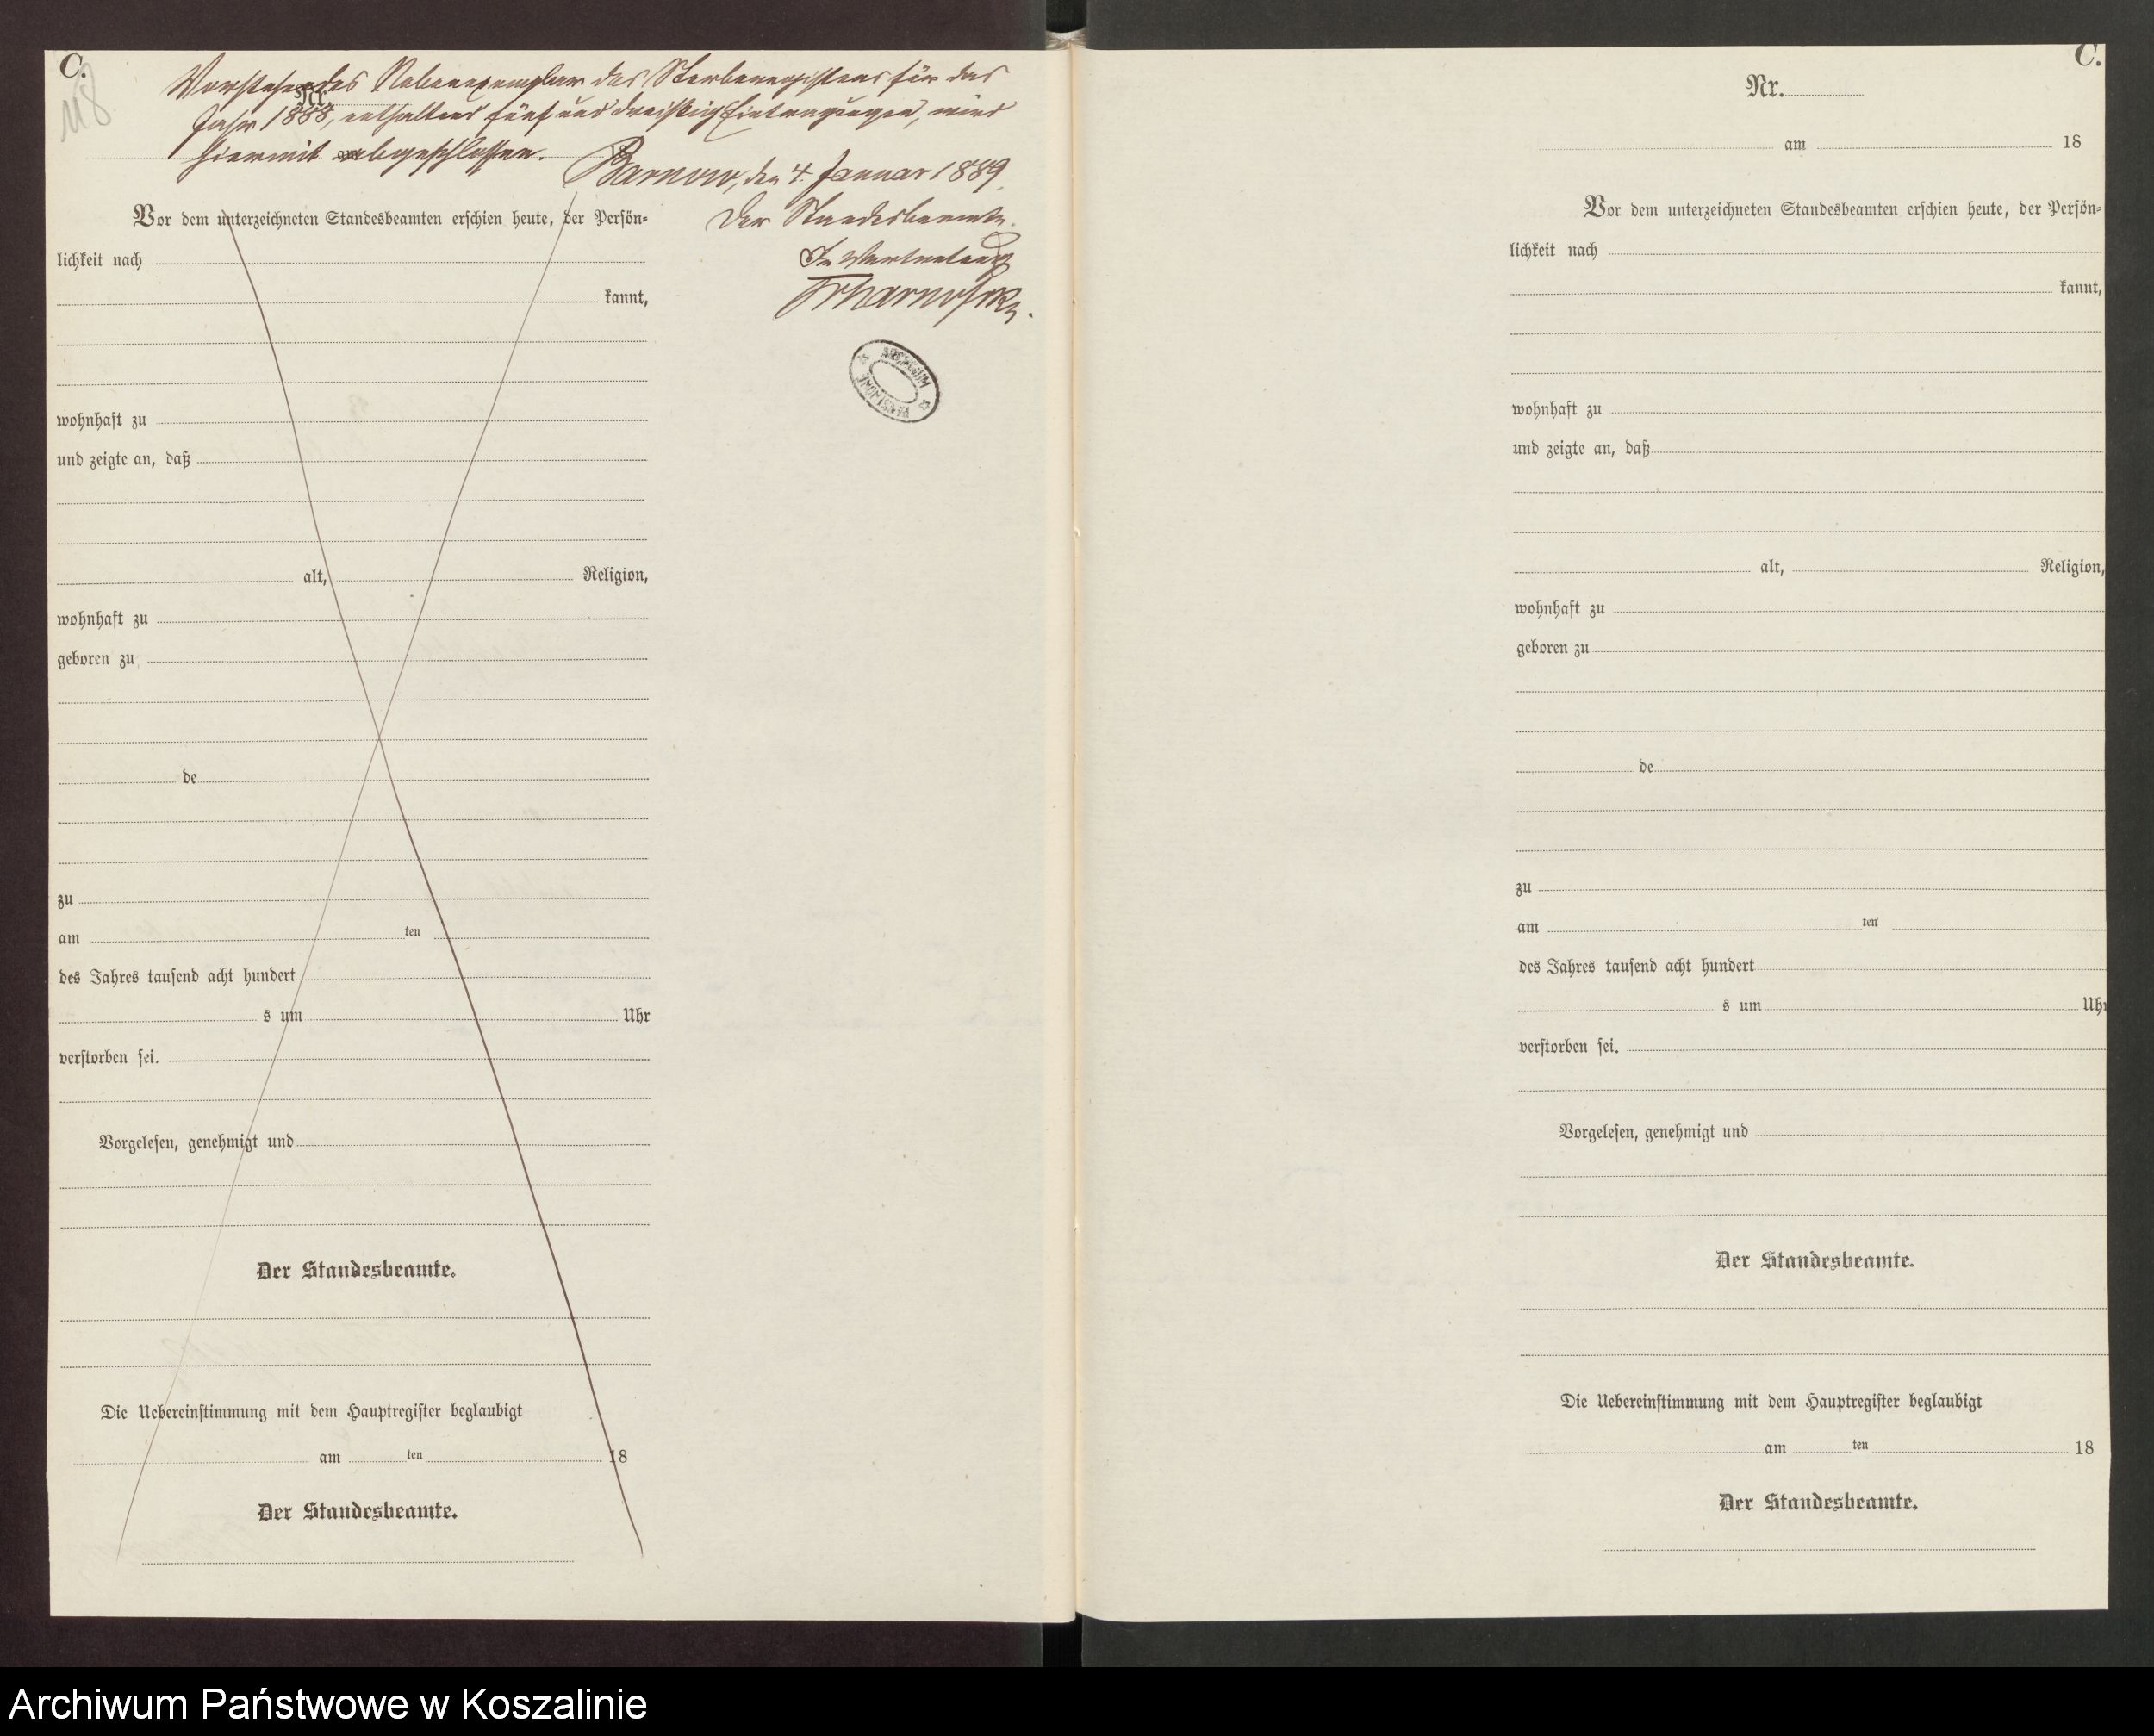 C.
118
Vorstehendes Nebenexemplar des Sterberegisters für das
Nr.
Jahr 1888, enthaltend fünf und dreißig Eintragungen, wird
hiermit abgeschlossen.
18
Barnow, den 4. Januar 1889.
Der Standesbeamte.
In Vertretung
Vor dem unterzeichneten Standesbeamten erschien heute, der Persön-
lichkeit nach
kannt,
wohnhaft zu
und zeigte an, daß
alt, Religion,
wohnhaft zu
geboren zu
de
zu
am ten
des Jahres tausend acht hundert
s um Uhr
verstorben sei.
Vorgelesen, genehmigt und
Der Standesbeamte.
Die Uebereinstimmung mit dem Hauptregister beglaubigt
am ten 18
Der Standesbeamte.
ARCHIWUM
PAŃSTWOWE
C.
Nr.
am 18
Vor dem unterzeichneten Standesbeamten erschien heute, der Persön-
lichkeit nach
kannt,
wohnhaft zu
und zeigte an, daß
alt, Religion,
wohnhaft zu
geboren zu
de
zu
am ten
des Jahres tausend acht hundert
s um Uhr
verstorben sei.
Vorgelesen, genehmigt und
Der Standesbeamte.
Die Uebereinstimmung mit dem Hauptregister beglaubigt
am ten 18
Der Standesbeamte.
Archiwum Państwowe w Koszalinie